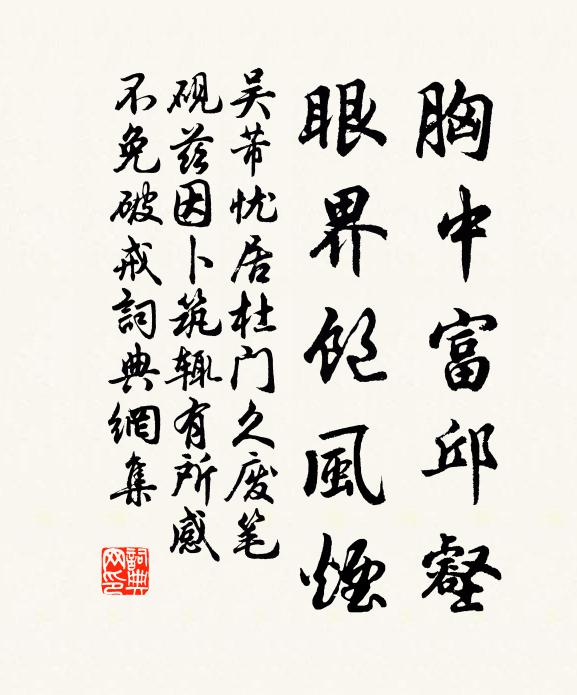 胸中富邱壑
眼界飽風煙
吴芾忧居杜门久废笔
硯兹因卜筑輒有所感
不免破戒詞典網集
詞典网印